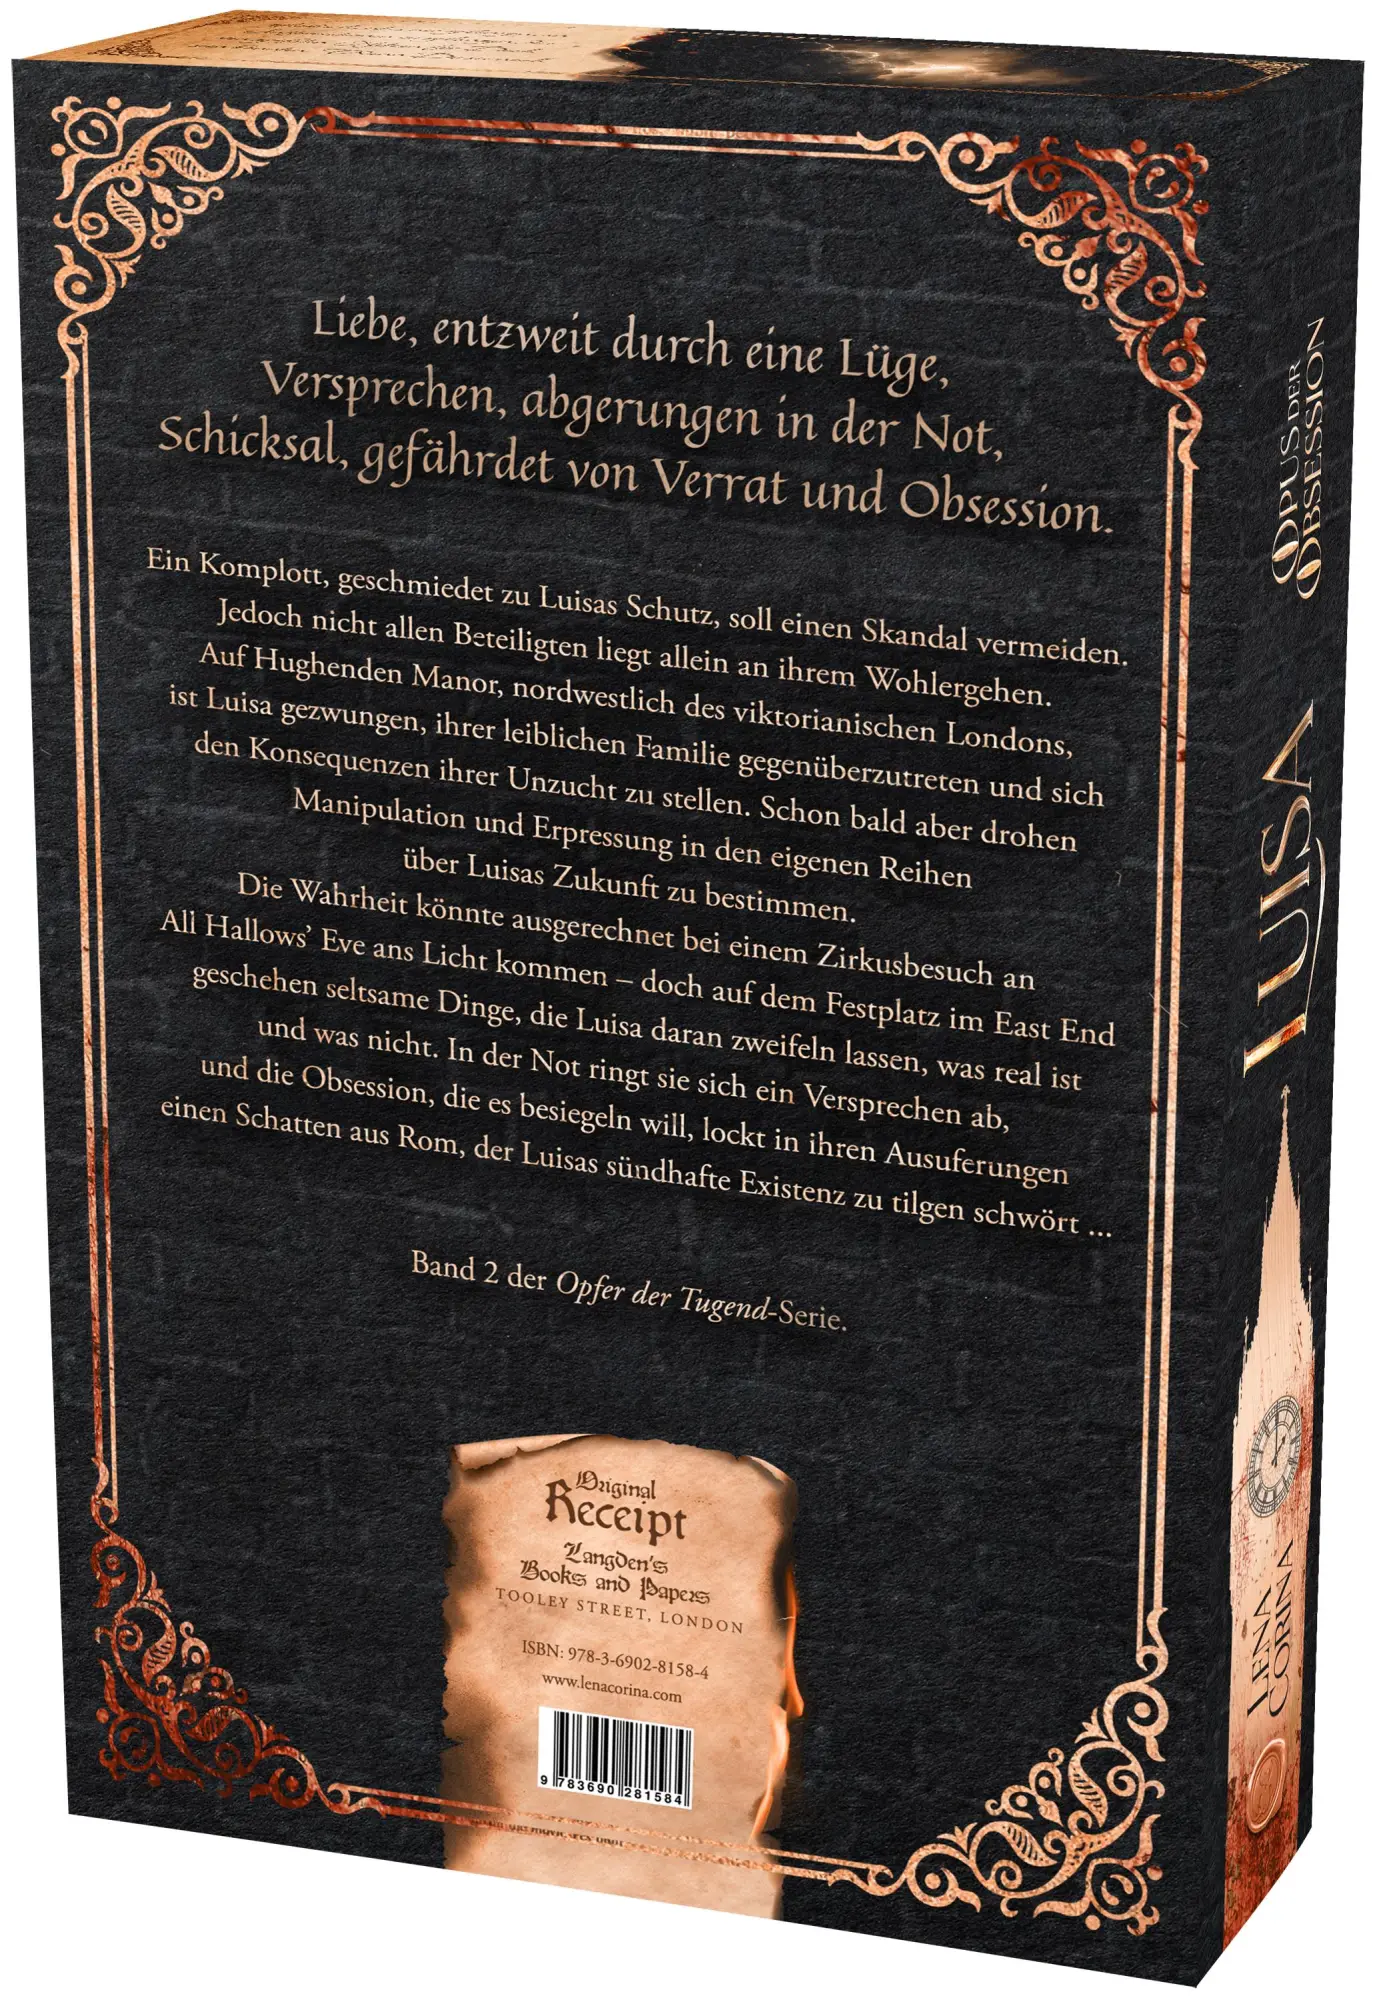 Liebe, entzweit durch eine Lüge,
Versprechen, abgerungen in der Not,
Schicksal, gefährdet von Verrat und Obsession.
Ein Komplott, geschmiedet zu Luisas Schutz, soll einen Skandal vermeiden.
Jedoch nicht allen Beteiligten liegt allein an ihrem Wohlergehen.
Auf Hughenden Manor, nordwestlich des viktorianischen Londons,
ist Luisa gezwungen, ihrer leiblichen Familie gegenüberzutreten und sich
den Konsequenzen ihrer Unzucht zu stellen. Schon bald aber drohen
Manipulation und Erpressung in den eigenen Reihen
über Luisas Zukunft zu bestimmen.
Die Wahrheit könnte ausgerechnet bei einem Zirkusbesuch an
All Hallows’ Eve ans Licht kommen – doch auf dem Festplatz im East End
geschehen seltsame Dinge, die Luisa daran zweifeln lassen, was real ist
und was nicht. In der Not ringt sie sich ein Versprechen ab,
und die Obsession, die es besiegeln will, lockt in ihren Ausuferungen
einen Schatten aus Rom, der Luisas sündhafte Existenz zu tilgen schwört ...
Band 2 der Opfer der Tugend-Serie.
Original
Receipt
Langden's
Books and Papers
TOOLEY STREET, LONDON
ISBN: 978-3-6902-8158-4
www.lenacorina.com
9 783690 281584
OPUS DER
OBSESSION
LUISA
LENA
CORINA